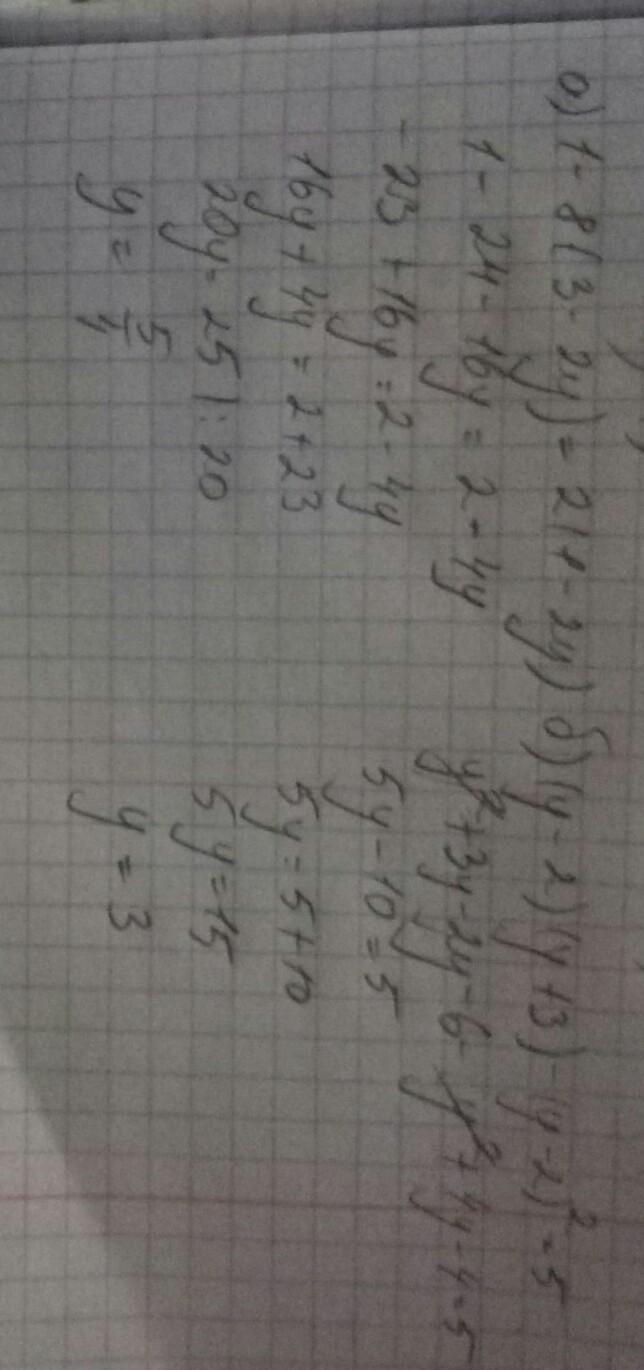 а) 1 - 8(3 - 2y) = 2(1 - 2y)
1 - 24 - 16y = 2 - 4y
- 23 + 16y = 2 - 4y
16y + 4y = 2 + 23
20y = 25 | : 20
y = 5/4
б) (y - 2)(y + 3) - (y - 2)² = 5
y² + 3y - 2y - 6 - y² + 4y - 4 = 5
5y - 10 = 5
5y = 5 + 10
5y = 15
y = 3